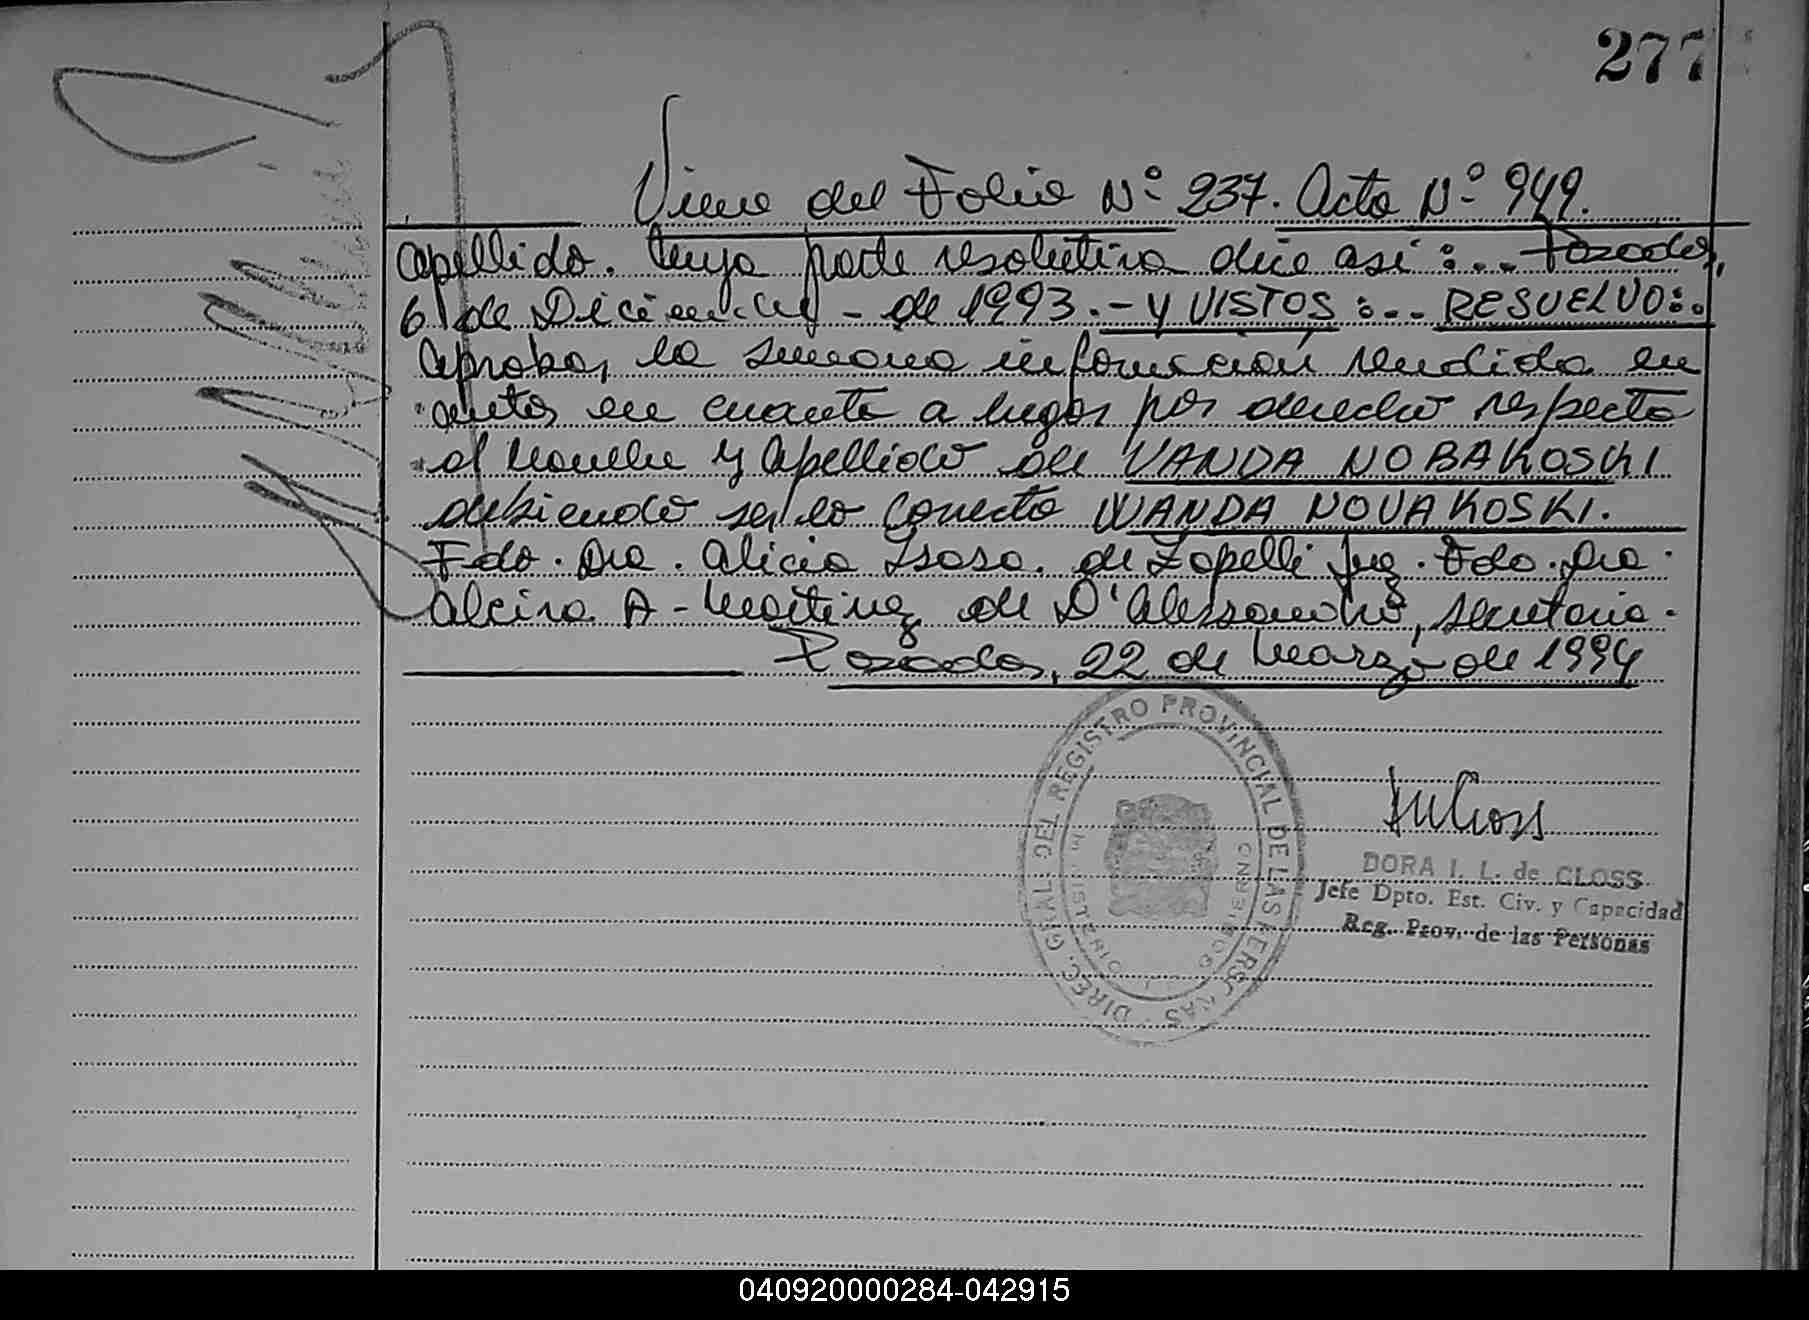 277
Viene del Folio Nº 237. Acta Nº 949.
apellido. Cuya parte resolutiva dice así :... Posadas,
6 de Diciembre - de 1993.- Y VISTOS :... RESUELVO:.
Aprobar, la sumaria información rendida en
autos en cuanto a lugar por derecho respecto
al Nombre y Apellido de VANDA NOBAKOSKI
debiendo ser lo correcto WANDA NOVAKOSKI.
Fdo. Dra. Alicia de Zapelli Juez. Fdo. Dra.
Alcira A - Martinez de D'Alessandro, secretaria.
Posadas, 22 de Marzo de 1994
DIREC. GRAL. DEL REGISTRO PROVINCIAL DE LAS PERSONAS
MINISTERIO GOBIERNO
DORA I. L. de CLOSS
Jefe Dpto. Est. Civ. y Capacidad
Reg. Prov. de las Personas
040920000284-042915